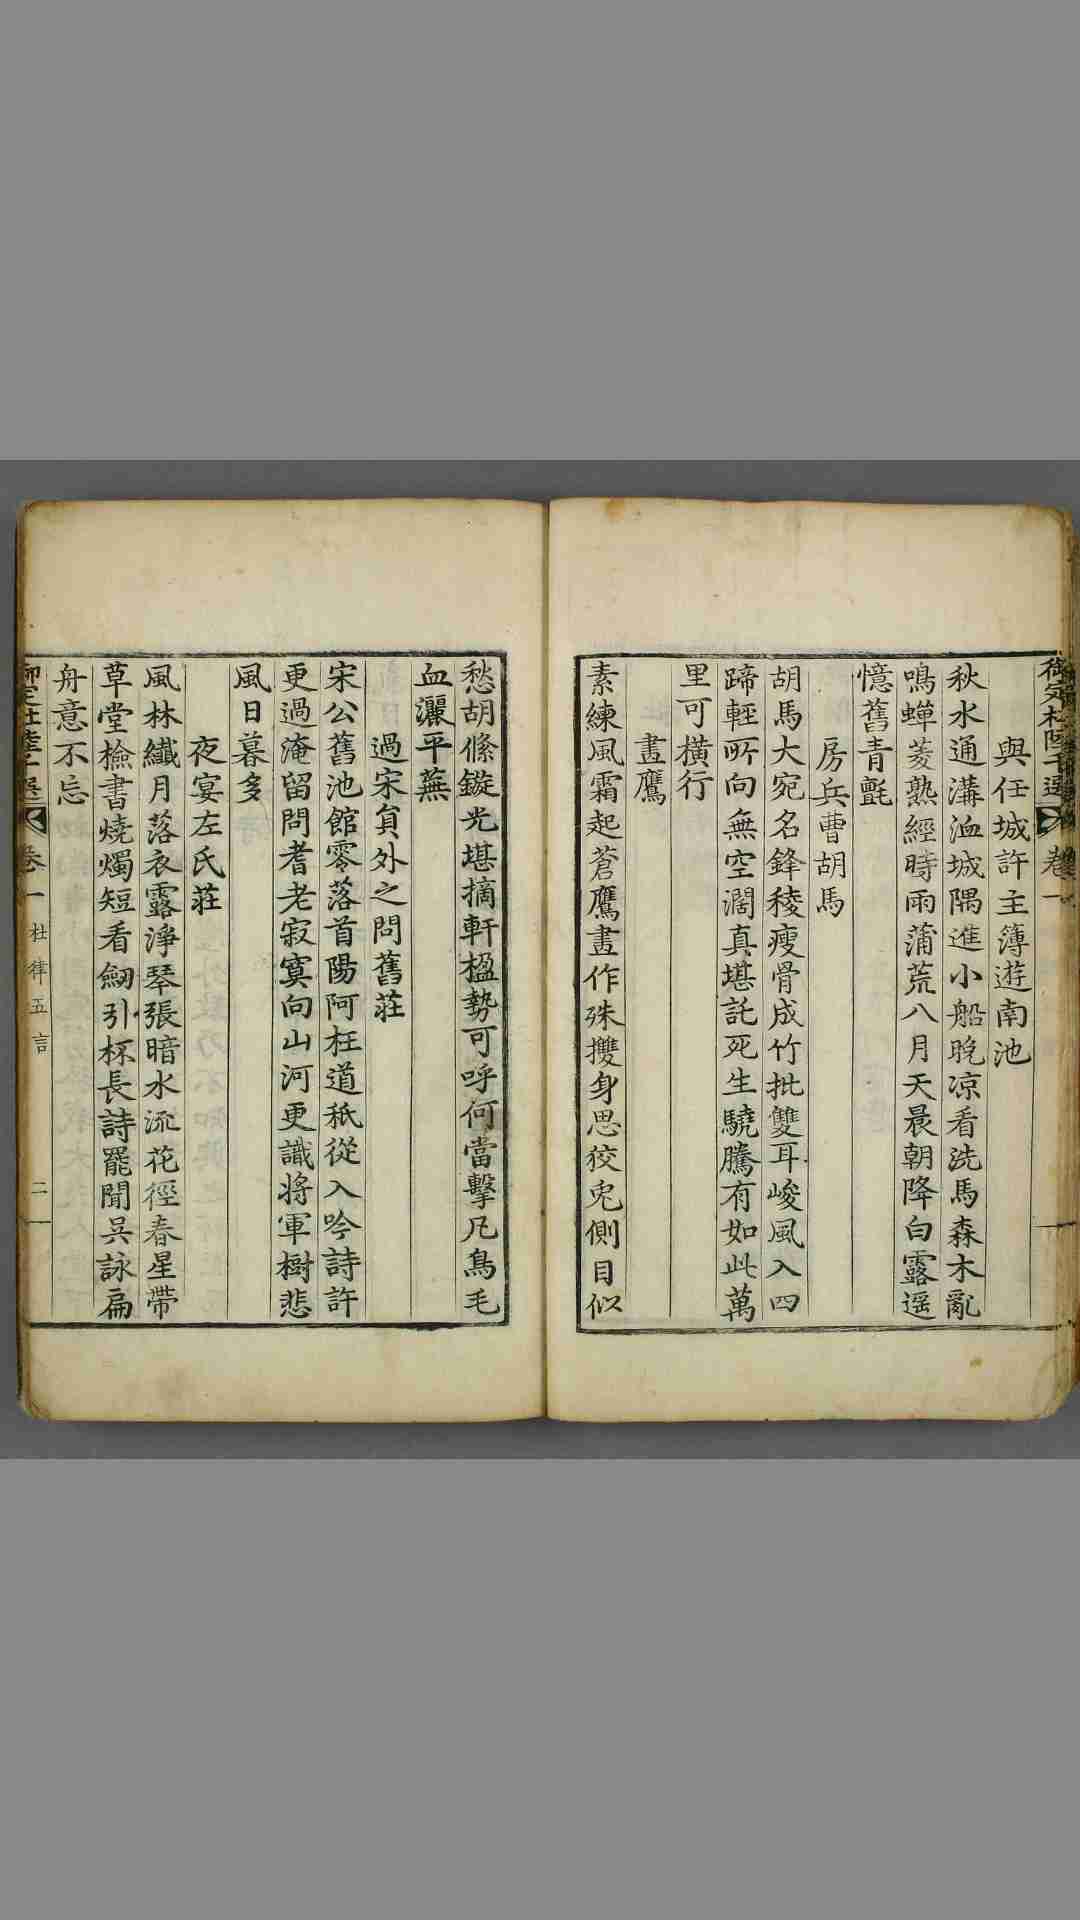 御定杜陸千選 卷一
與任城許主簿遊南池
秋水通溝洫城隅進小船晩凉看洗馬森木亂
鳴蟬菱熟經時雨蒲荒八月天晨朝降白露遥
憶舊青氈
房兵曹胡馬
胡馬大宛名鋒稜瘦骨成竹批雙耳峻風入四
蹄輕所向無空濶真堪託死生驍騰有如此萬
里可橫行
畫鷹
素練風霜起蒼鷹畫作殊㩳身思狡兎側目似
愁胡絛鏇光堪摘軒楹勢可呼何當擊凡鳥毛
血灑平蕪
過宋負外之問舊莊
宋公舊池館零落首陽阿枉道秖從入吟詩許
更過淹留問耆老寂寞向山河更識將軍樹悲
風日暮多
夜宴左氏莊
風林纖月落衣露淨琴張暗水流花徑春星帶
草堂檢書燒燭短看劒引杯長詩罷聞吳詠扁
舟意不忘
御定杜陸千選 卷一 杜律五言 二